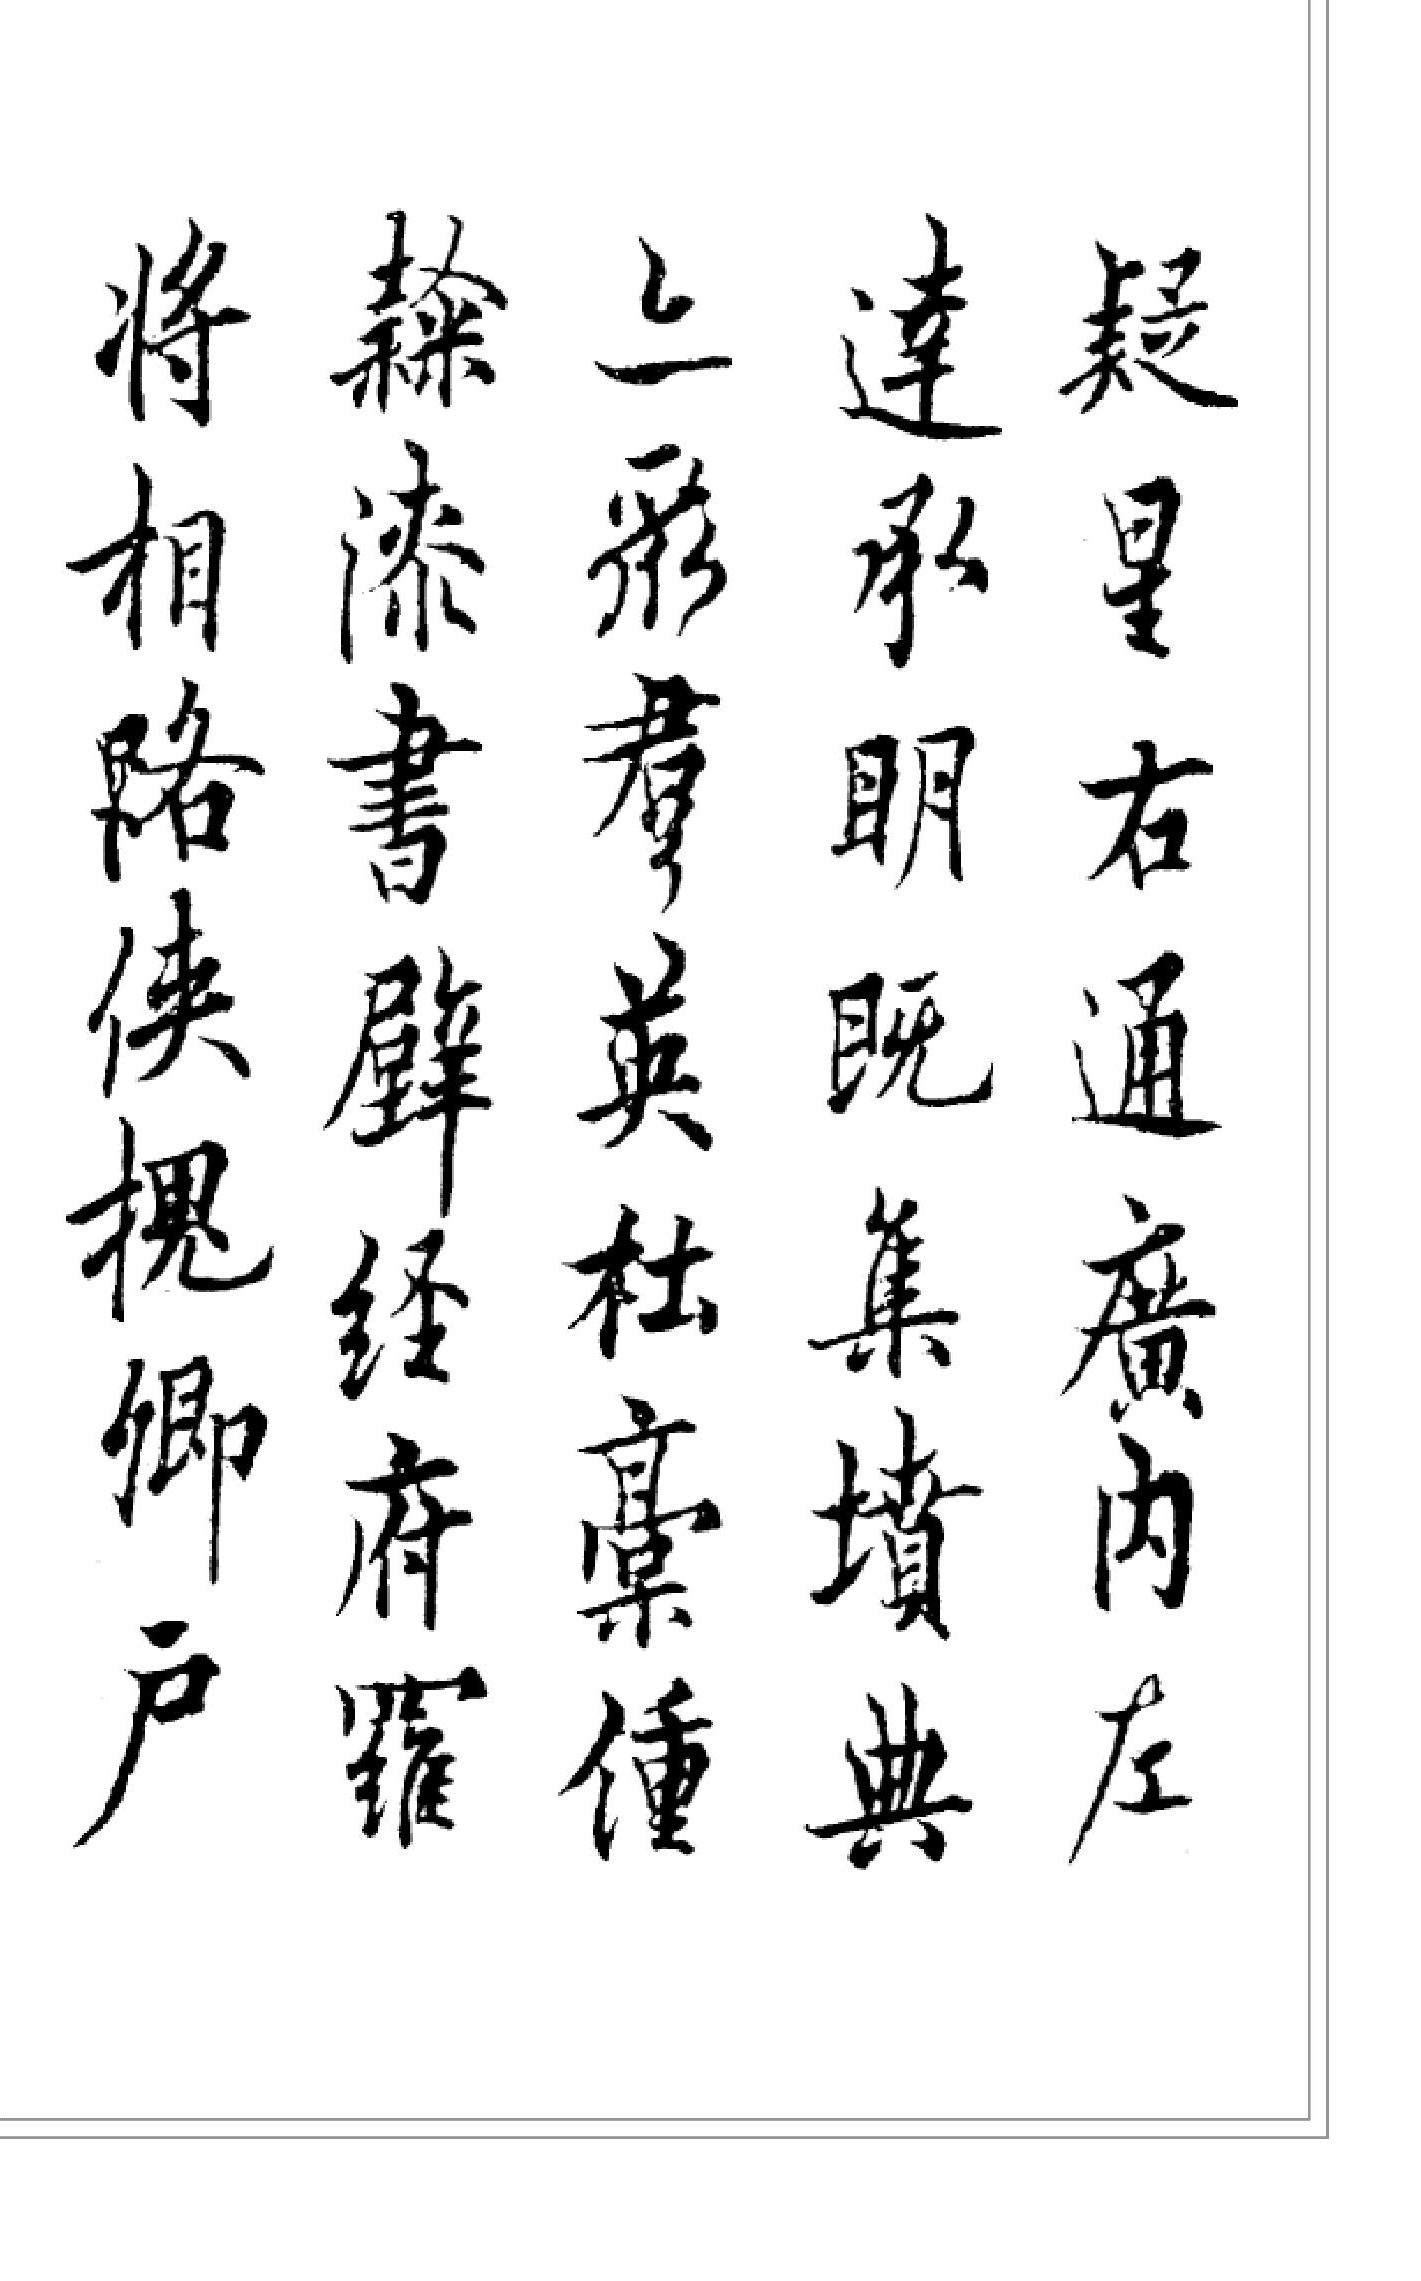 疑星右通廣内左
達承明既集墳典
亦聚群英杜稾鍾
隸漆書壁経府羅
将相路侠槐卿户